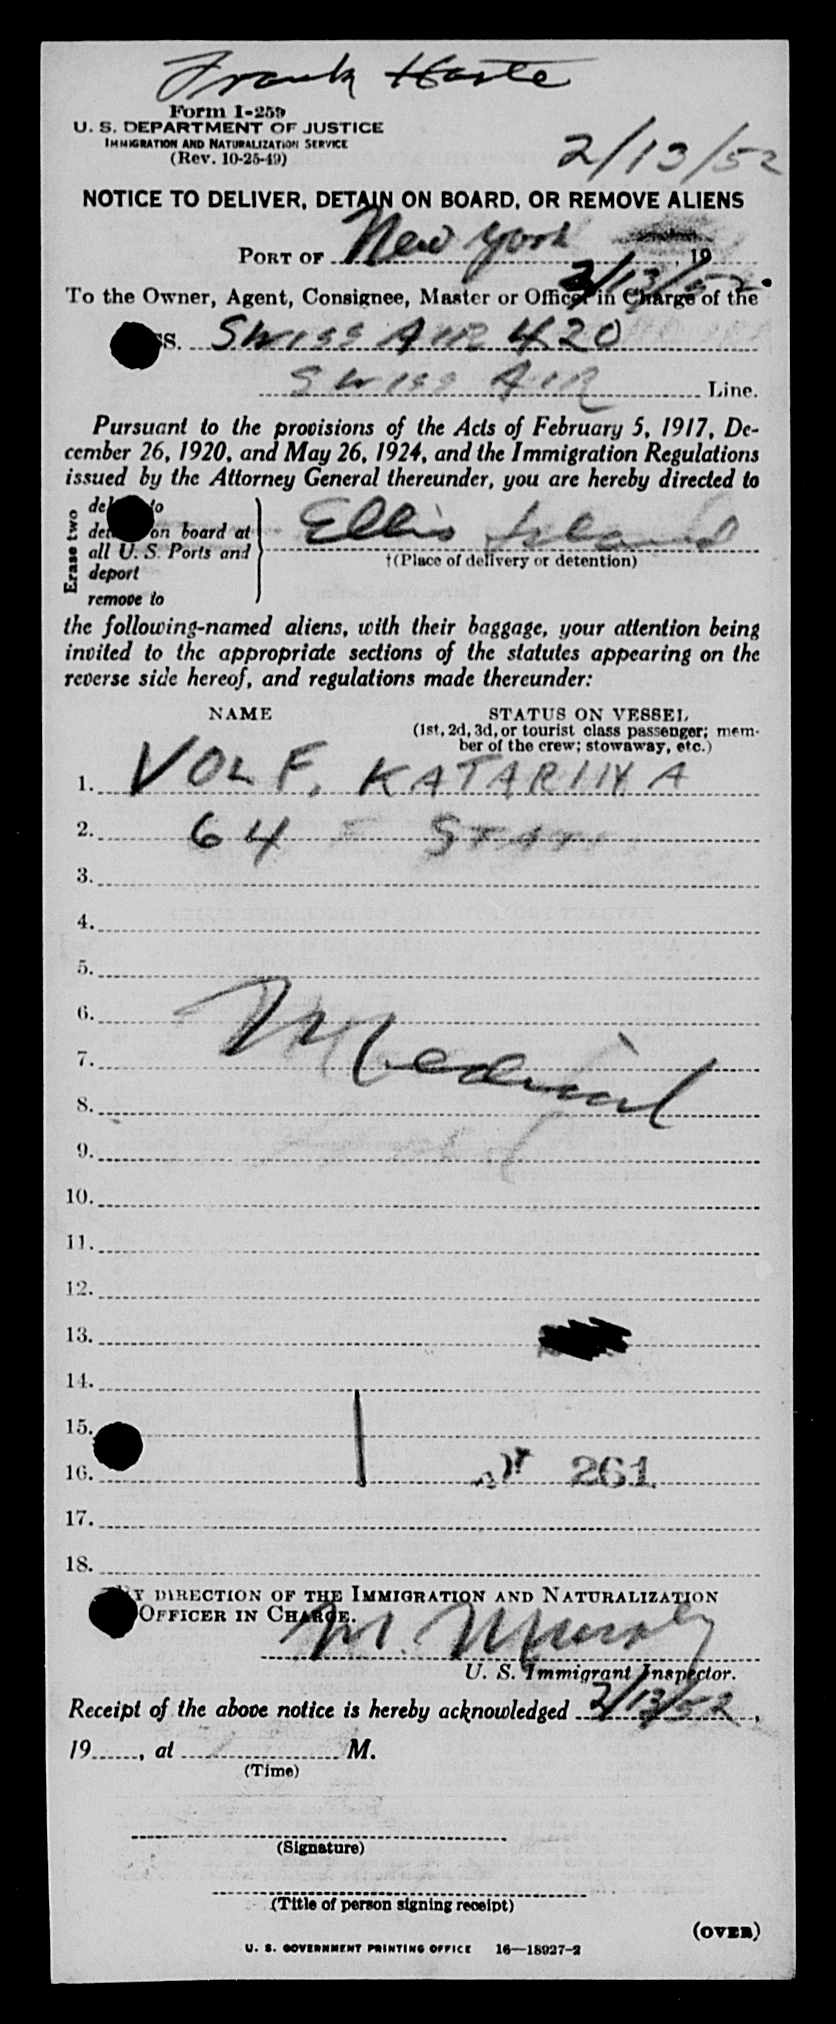 Frank Haste
Form I-259
U. S. DEPARTMENT OF JUSTICE
IMMIGRATION AND NATURALIZATION SERVICE
(Rev. 10-25-49)
2/13/52
NOTICE TO DELIVER, DETAIN ON BOARD, OR REMOVE ALIENS
PORT OF New York , 19
2/13/52
To the Owner, Agent, Consignee, Master or Officer in Charge of the
SS. SWISS AIR 420
SWISS AIR Line.
Pursuant to the provisions of the Acts of February 5, 1917, De-
cember 26, 1920, and May 26, 1924, and the Immigration Regulations
issued by the Attorney General thereunder, you are hereby directed to
Erase two
to
on board at
all U. S. Ports and
deport
remove to
Ellis Island
†(Place of delivery or detention)
the following-named aliens, with their baggage, your attention being
invited to the appropriate sections of the statutes appearing on the
reverse side hereof, and regulations made thereunder:
NAME STATUS ON VESSEL
(1st, 2d, 3d, or tourist class passenger; mem-
ber of the crew; stowaway, etc.)
1. VOLF, KATARINA
2. 64 F
3.
4.
5.
6. Medical
7.
8.
9.
10.
11.
12.
13.
14.
15.
16. 261
17.
18.
BY DIRECTION OF THE IMMIGRATION AND NATURALIZATION
OFFICER IN CHARGE.
M.
U. S. Immigrant Inspector.
Receipt of the above notice is hereby acknowledged 2/13/52,
19......, at M.
(Time)
(Signature)
(Title of person signing receipt)
(OVER)
U. S. GOVERNMENT PRINTING OFFICE 16—18927-2